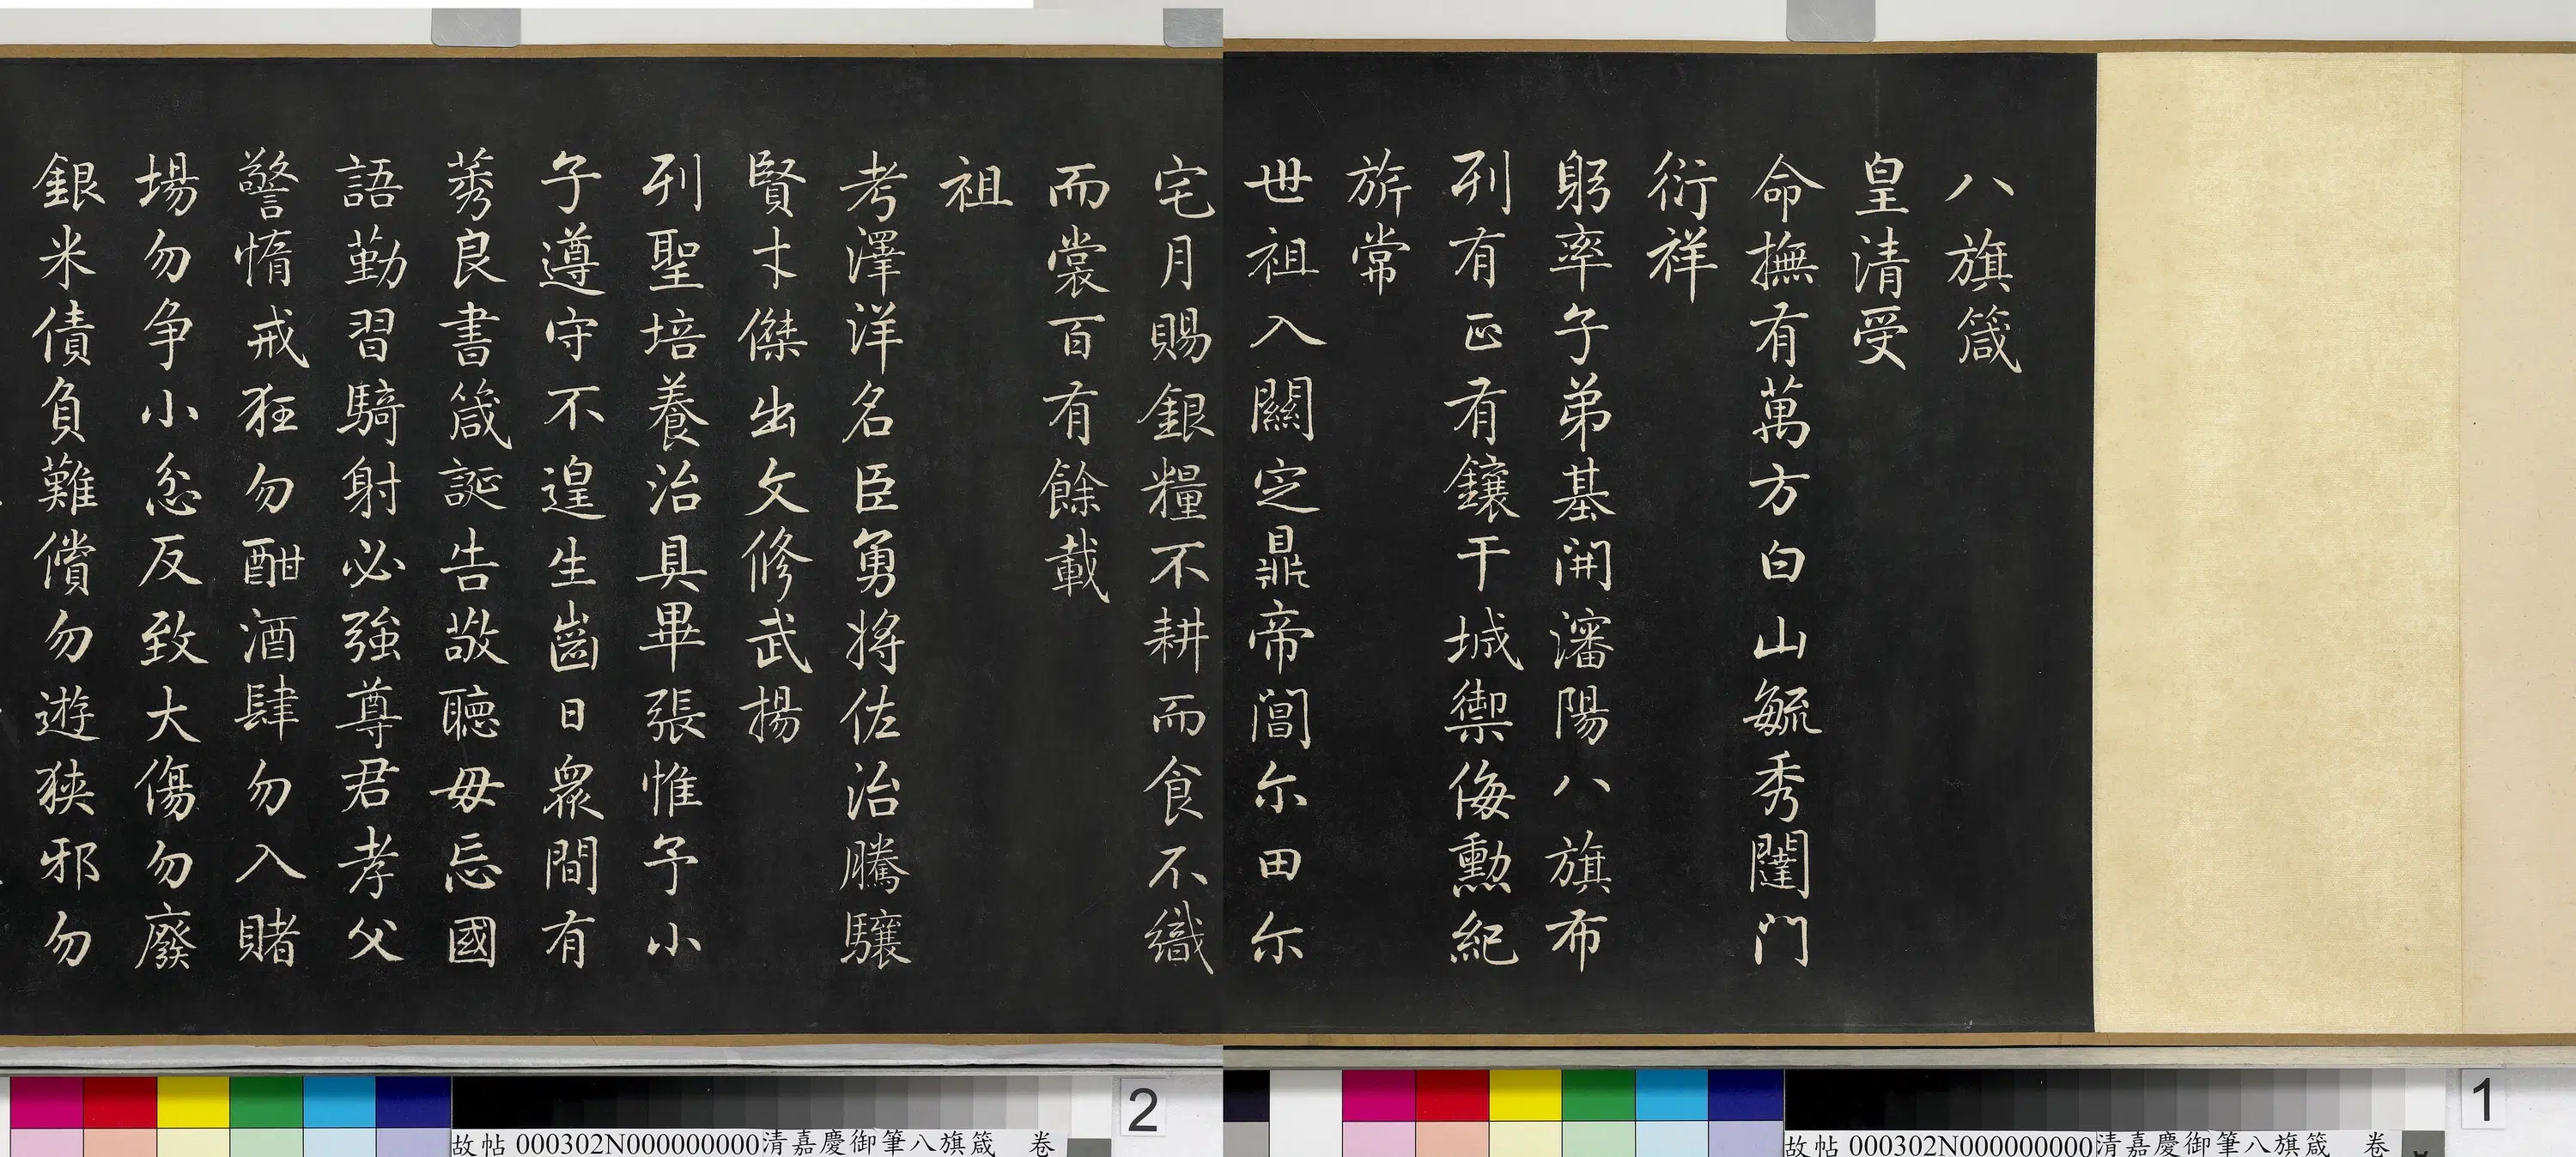 八旗箴
皇清受
命撫有萬方白山毓秀闥門
衍祥
躬率子弟基開瀋陽八旗布
列有正有鑲干城禦侮勳紀
旂常
世祖入關定鼎帝閭尔田尔
宅月賜銀糧不耕而食不織
而裳百有餘載
祖
考澤洋名臣勇將佐治騰驤
賢才傑出文修武揚
列聖培養治具畢張惟予小
子遵守不遑生齒日衆間有
莠良書箴誕告敬聽毋忘國
語勤習騎射必強尊君孝父
警惰戒狂勿酣酒肆勿入賭
場勿争小忿反致大傷勿廢
銀米債負難償勿遊狭邪勿
2
故帖 000302N000000000清嘉慶御筆八旗箴 卷
1
故帖 000302N000000000清嘉慶御筆八旗箴 卷